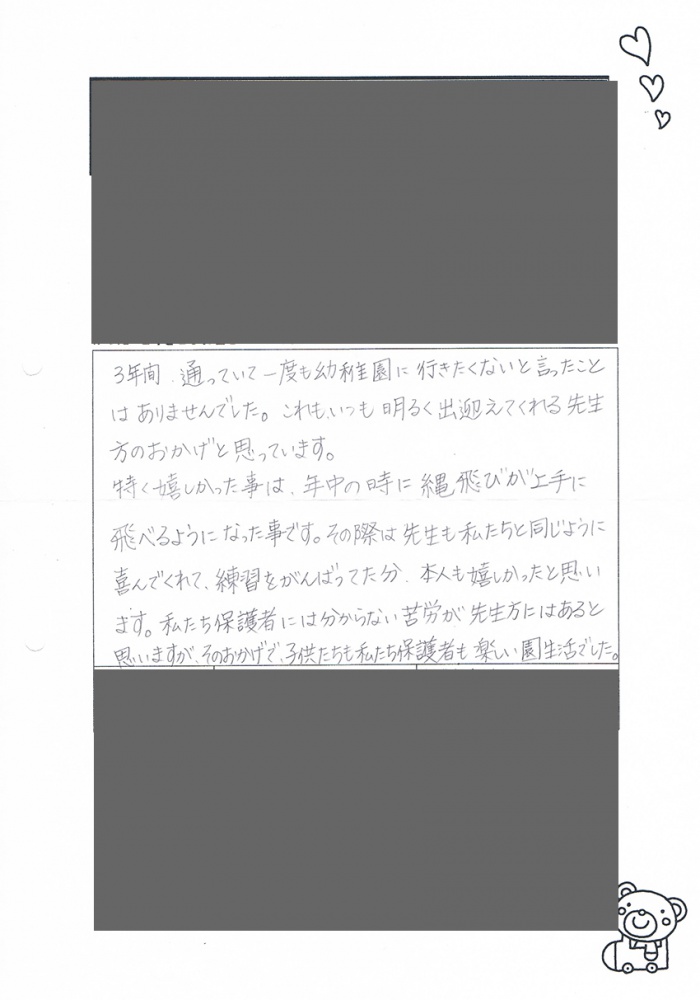 3年間、通っていて一度も幼稚園に行きたくないと言ったこと
はありませんでした。これも、いつも明るく出迎えてくれる先生
方のおかげと思っています。
特に嬉しかった事は、年中の時に縄飛びが上手に
飛べるようになった事です。その際は先生も私たちと同じように
喜んでくれて、練習をがんばってた分、本人も嬉しかったと思い
ます。私たち保護者には分からない苦労が先生方にはあると
思いますが、そのおかげで、子供たちも私たち保護者も楽しい園生活でした。